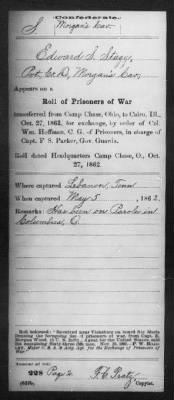 Confederate.
S Morgan's Cav.
Edward S. Stagg,
Pvt, Co. D, Morgan's Cav.
Appears on a
Roll of Prisoners of War
transferred from Camp Chase, Ohio, to Cairo, Ill.,
Oct. 27, 1862, for exchange, by order of Col.
Wm. Hoffman, C. G. of Prisoners, in charge of
Capt. F. S. Parker, Gov. Guards.
Roll dated Headquarters Camp Chase, O., Oct.
27, 1862.
Where captured Lebanon, Tenn
When captured May 5, 1862.
Remarks: Has been on Parole in
Columbus, O.
228 Page 2
Copyist.